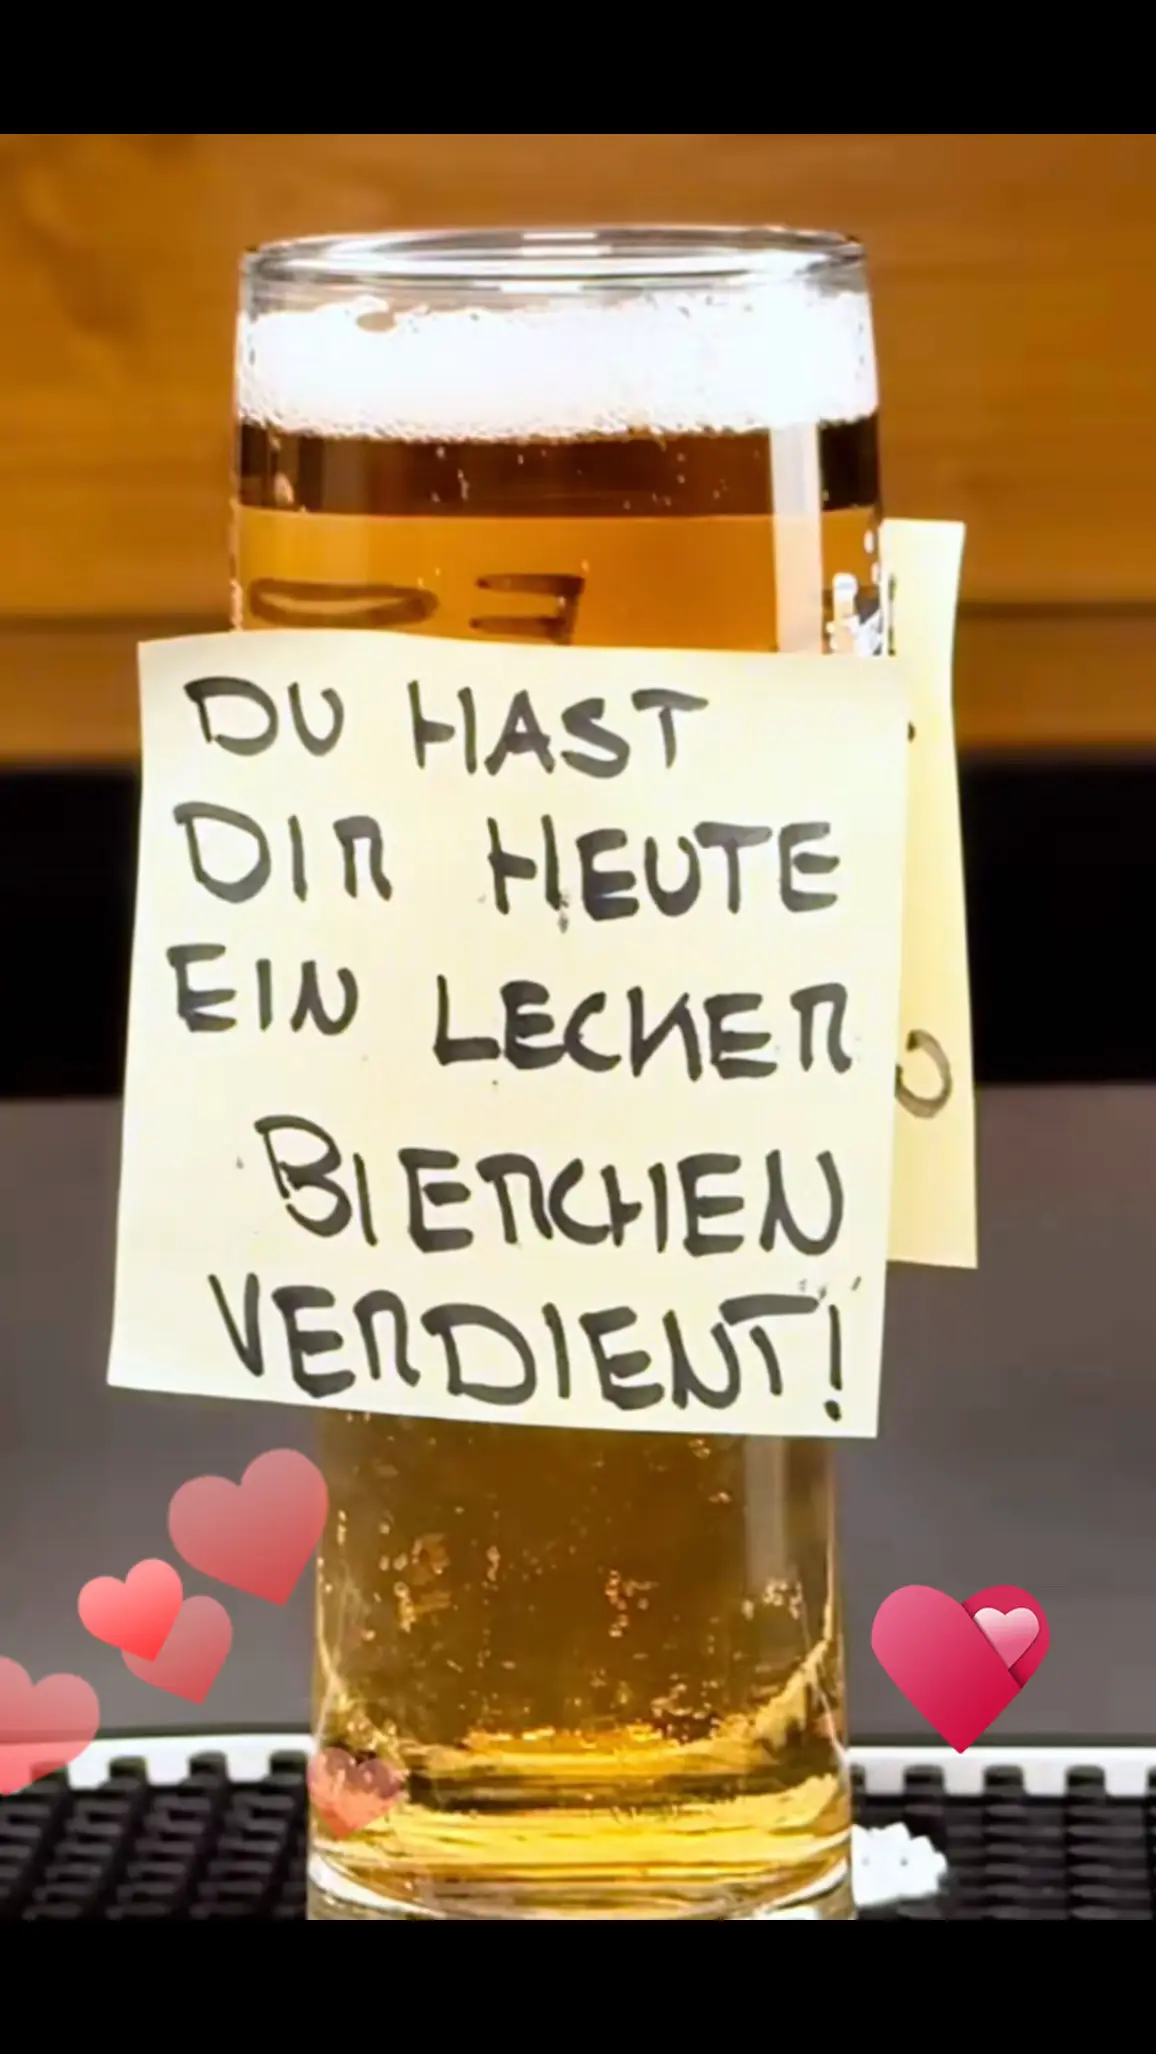 DU HAST
DIR HEUTE
EIN LECKER
BIERCHEN
VERDIENT!